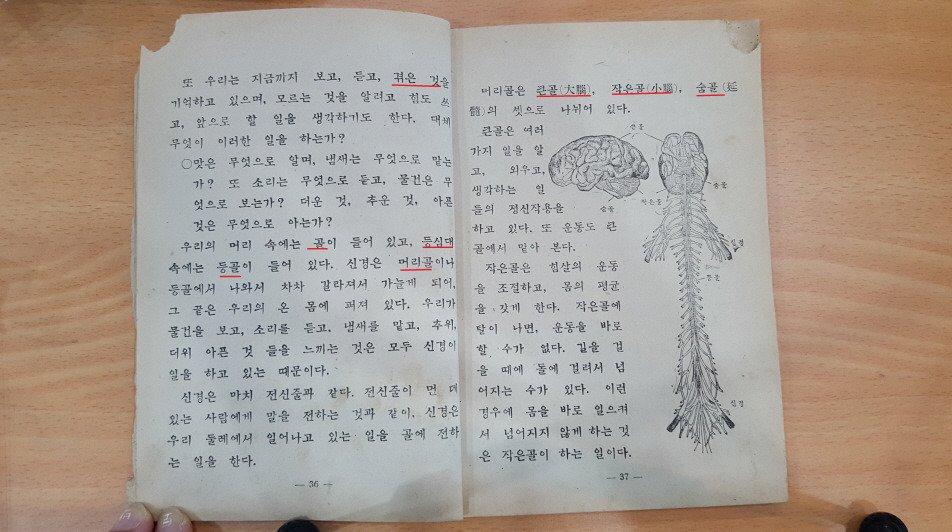 또 우리는 지금까지 보고, 듣고, 겪은 것을
기억하고 있으며, 모르는 것을 알려고 힘도 쓰
고, 앞으로 할 일을 생각하기도 한다. 대체
무엇이 이러한 일을 하는가?
○맛은 무엇으로 알며, 냄새는 무엇으로 맡는
가? 또 소리는 무엇으로 듣고, 물건은 무
엇으로 보는가? 더운 것, 추운 것, 아픈
것은 무엇으로 아는가?
우리의 머리 속에는 골이 들어 있고, 등심대
속에는 등골이 들어 있다. 신경은 머리골이나
등골에서 나와서 차차 갈라져서 가늘게 되어,
그 끝은 우리의 온 몸에 퍼져 있다. 우리가
물건을 보고, 소리를 듣고, 냄새를 맡고, 추위,
더위 아픈 것 들을 느끼는 것은 모두 신경이
일을 하고 있는 때문이다.
신경은 마치 전신줄과 같다. 전신줄이 먼 데
있는 사람에게 말을 전하는 것과 같이, 신경은
우리 둘레에서 일어나고 있는 일을 골에 전하
는 일을 한다.
— 36 —
머리골은 큰골(大腦), 작은골(小腦), 숨골(延
髓)의 셋으로 나뉘어 있다.
큰골은 여러
가지 일을 알
고, 외우고,
생각하는 일
들의 정신작용을
하고 있다. 또 운동도 큰
골에서 맡아 본다.
작은골은 힘살의 운동
을 조절하고, 몸의 평균
을 갖게 한다. 작은골에
탈이 나면, 운동을 바로
할 수가 없다. 길을 걸
을 때에 돌에 걸려서 넘
어지는 수가 있다. 이런
경우에 몸을 바로 일으켜
서 넘어지지 않게 하는 것
은 작은골이 하는 일이다.
큰골
숨골
작은골
숨골
신경
등골
신경
— 37 —